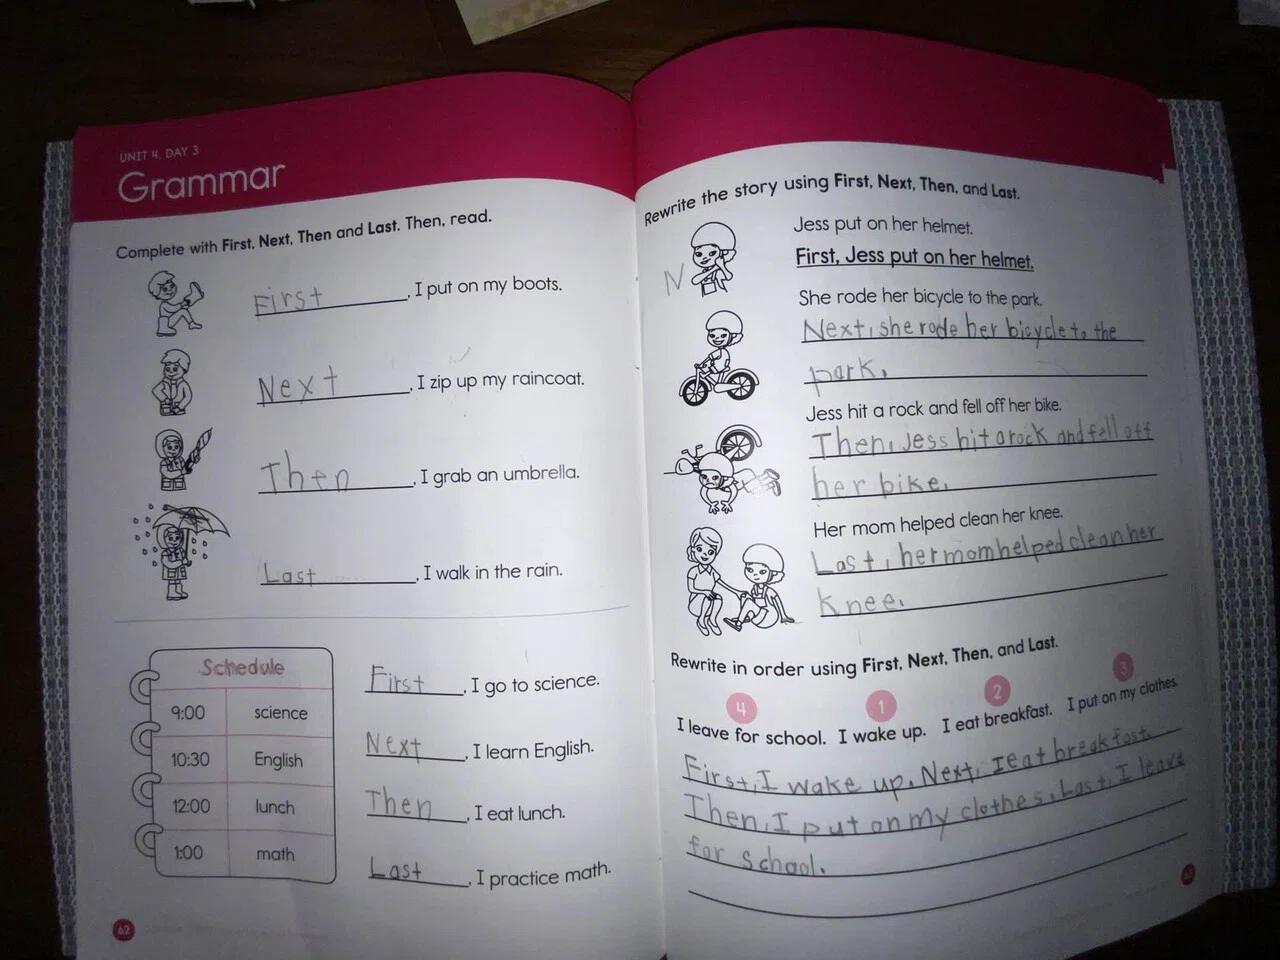 UNIT 4, DAY 3
Grammar
Complete with First, Next, Then and Last. Then, read.
First, I put on my boots.
Next, I zip up my raincoat.
Then, I grab an umbrella.
Last, I walk in the rain.
Schedule
9:00 science
10:30 English
12:00 lunch
1:00 math
First, I go to science.
Next, I learn English.
Then, I eat lunch.
Last, I practice math.
62
Rewrite the story using First, Next, Then, and Last.
N
Jess put on her helmet.
First, Jess put on her helmet.
She rode her bicycle to the park.
Next, she rode her bicycle to the
park.
Jess hit a rock and fell off her bike.
Then, Jess hit a rock and fell off
her bike.
Her mom helped clean her knee.
Last, her mom helped clean her
knee.
Rewrite in order using First, Next, Then, and Last.
4 1 2 3
I leave for school. I wake up. I eat breakfast. I put on my clothes.
First, I wake up. Next, I eat breakfast.
Then, I put on my clothes. Last, I leave
for school.